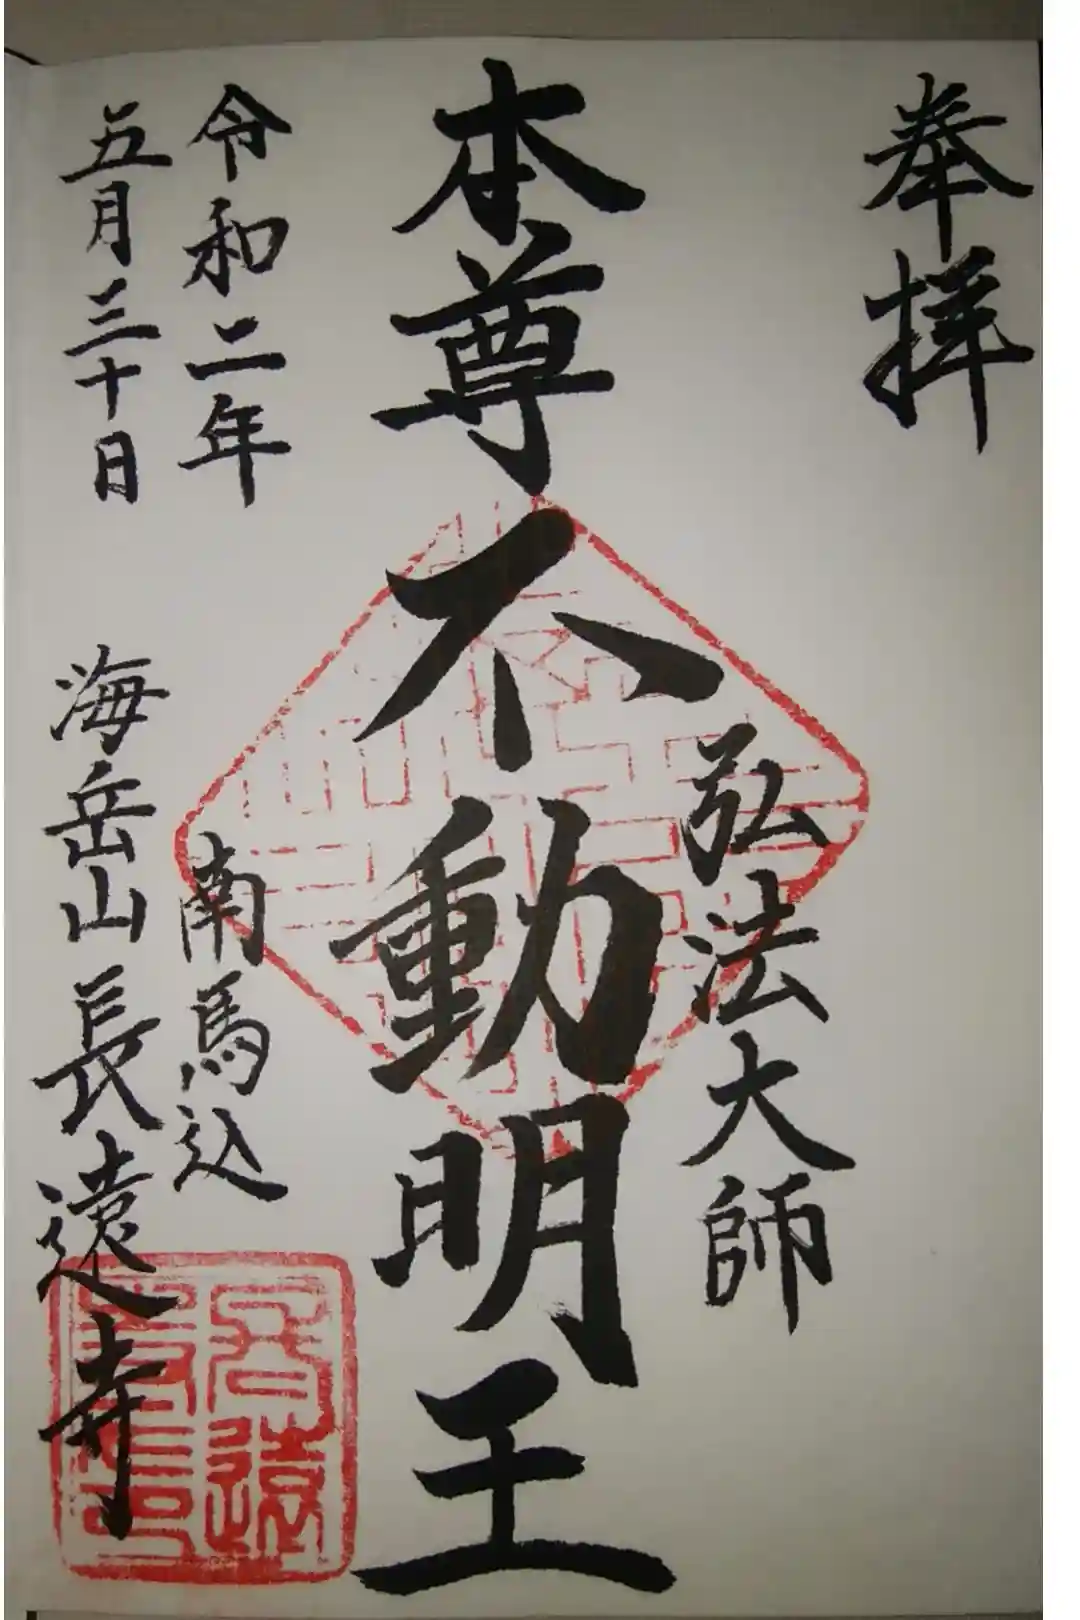 奉拝
弘法大師
本尊不動明王
令和二年
五月三十日
南馬込
海岳山長遠寺